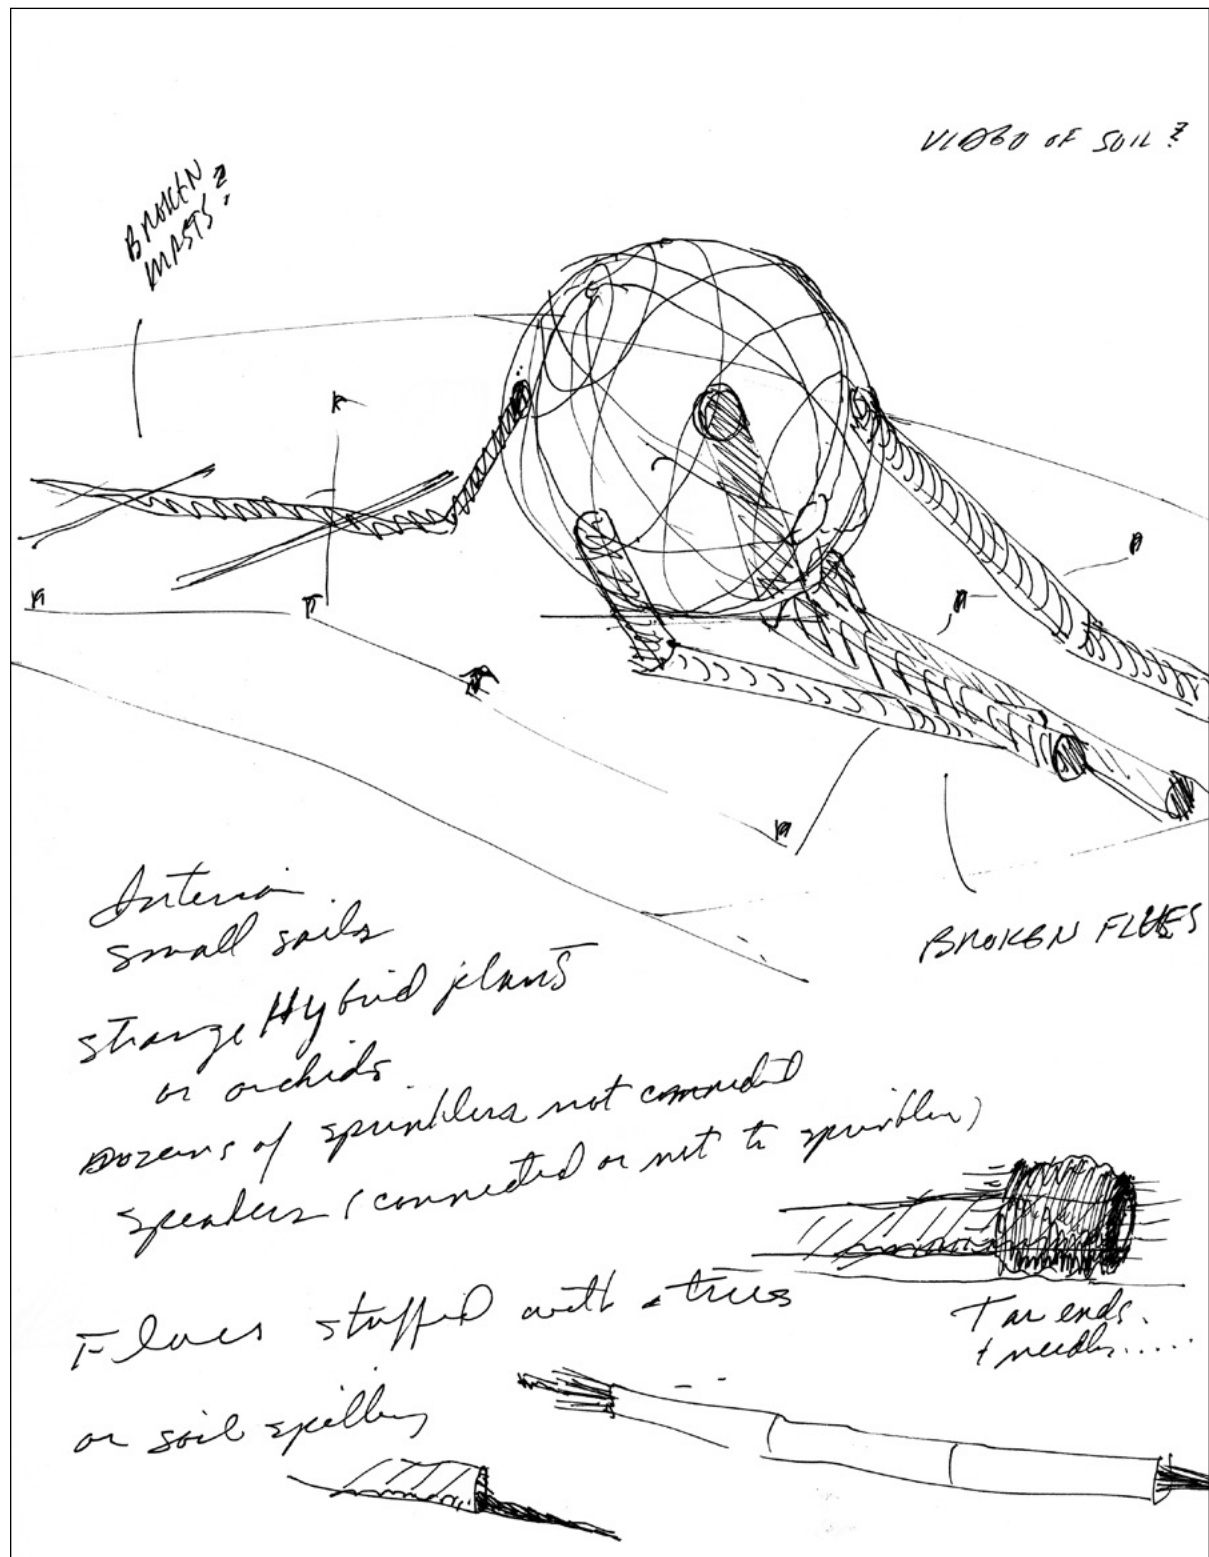 VIDEO OF SOIL?
BROKEN
MASTS?
BROKEN FLUES
Interior
small sails
strange Hybrid plants
or orchids
Dozens of sprinklers not connected
speakers (connected or not to sprinklers)
Flues stuffed with trees
or soil spilling
Tar ends.
+ needles.....